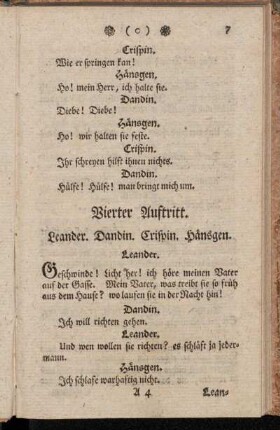 ( c ) 7
Crispin.
Wie er springen kan!
Hänsgen.
Ho! mein Herr, ich halte sie.
Dandin.
Diebe! Diebe!
Hänsgen.
Ho! wir halten sie feste.
Crispin.
Ihr schreyen hilft ihnen nichts.
Dandin.
Hülfe! Hülfe! man bringt mich um.
Vierter Auftritt.
Leander. Dandin. Crispin. Hänsgen.
Leander.
Geschwinde! Licht her! ich höre meinen Vater
auf der Gasse. Mein Vater, was treibt sie so früh
aus dem Hause? wo laufen sie in der Nacht hin!
Dandin.
Ich will richten gehen.
Leander.
Und wen wollen sie richten? es schläft ja jeder-
mann.
Hänsgen.
Ich schlafe warhaftig nicht.
A 4 Lean-